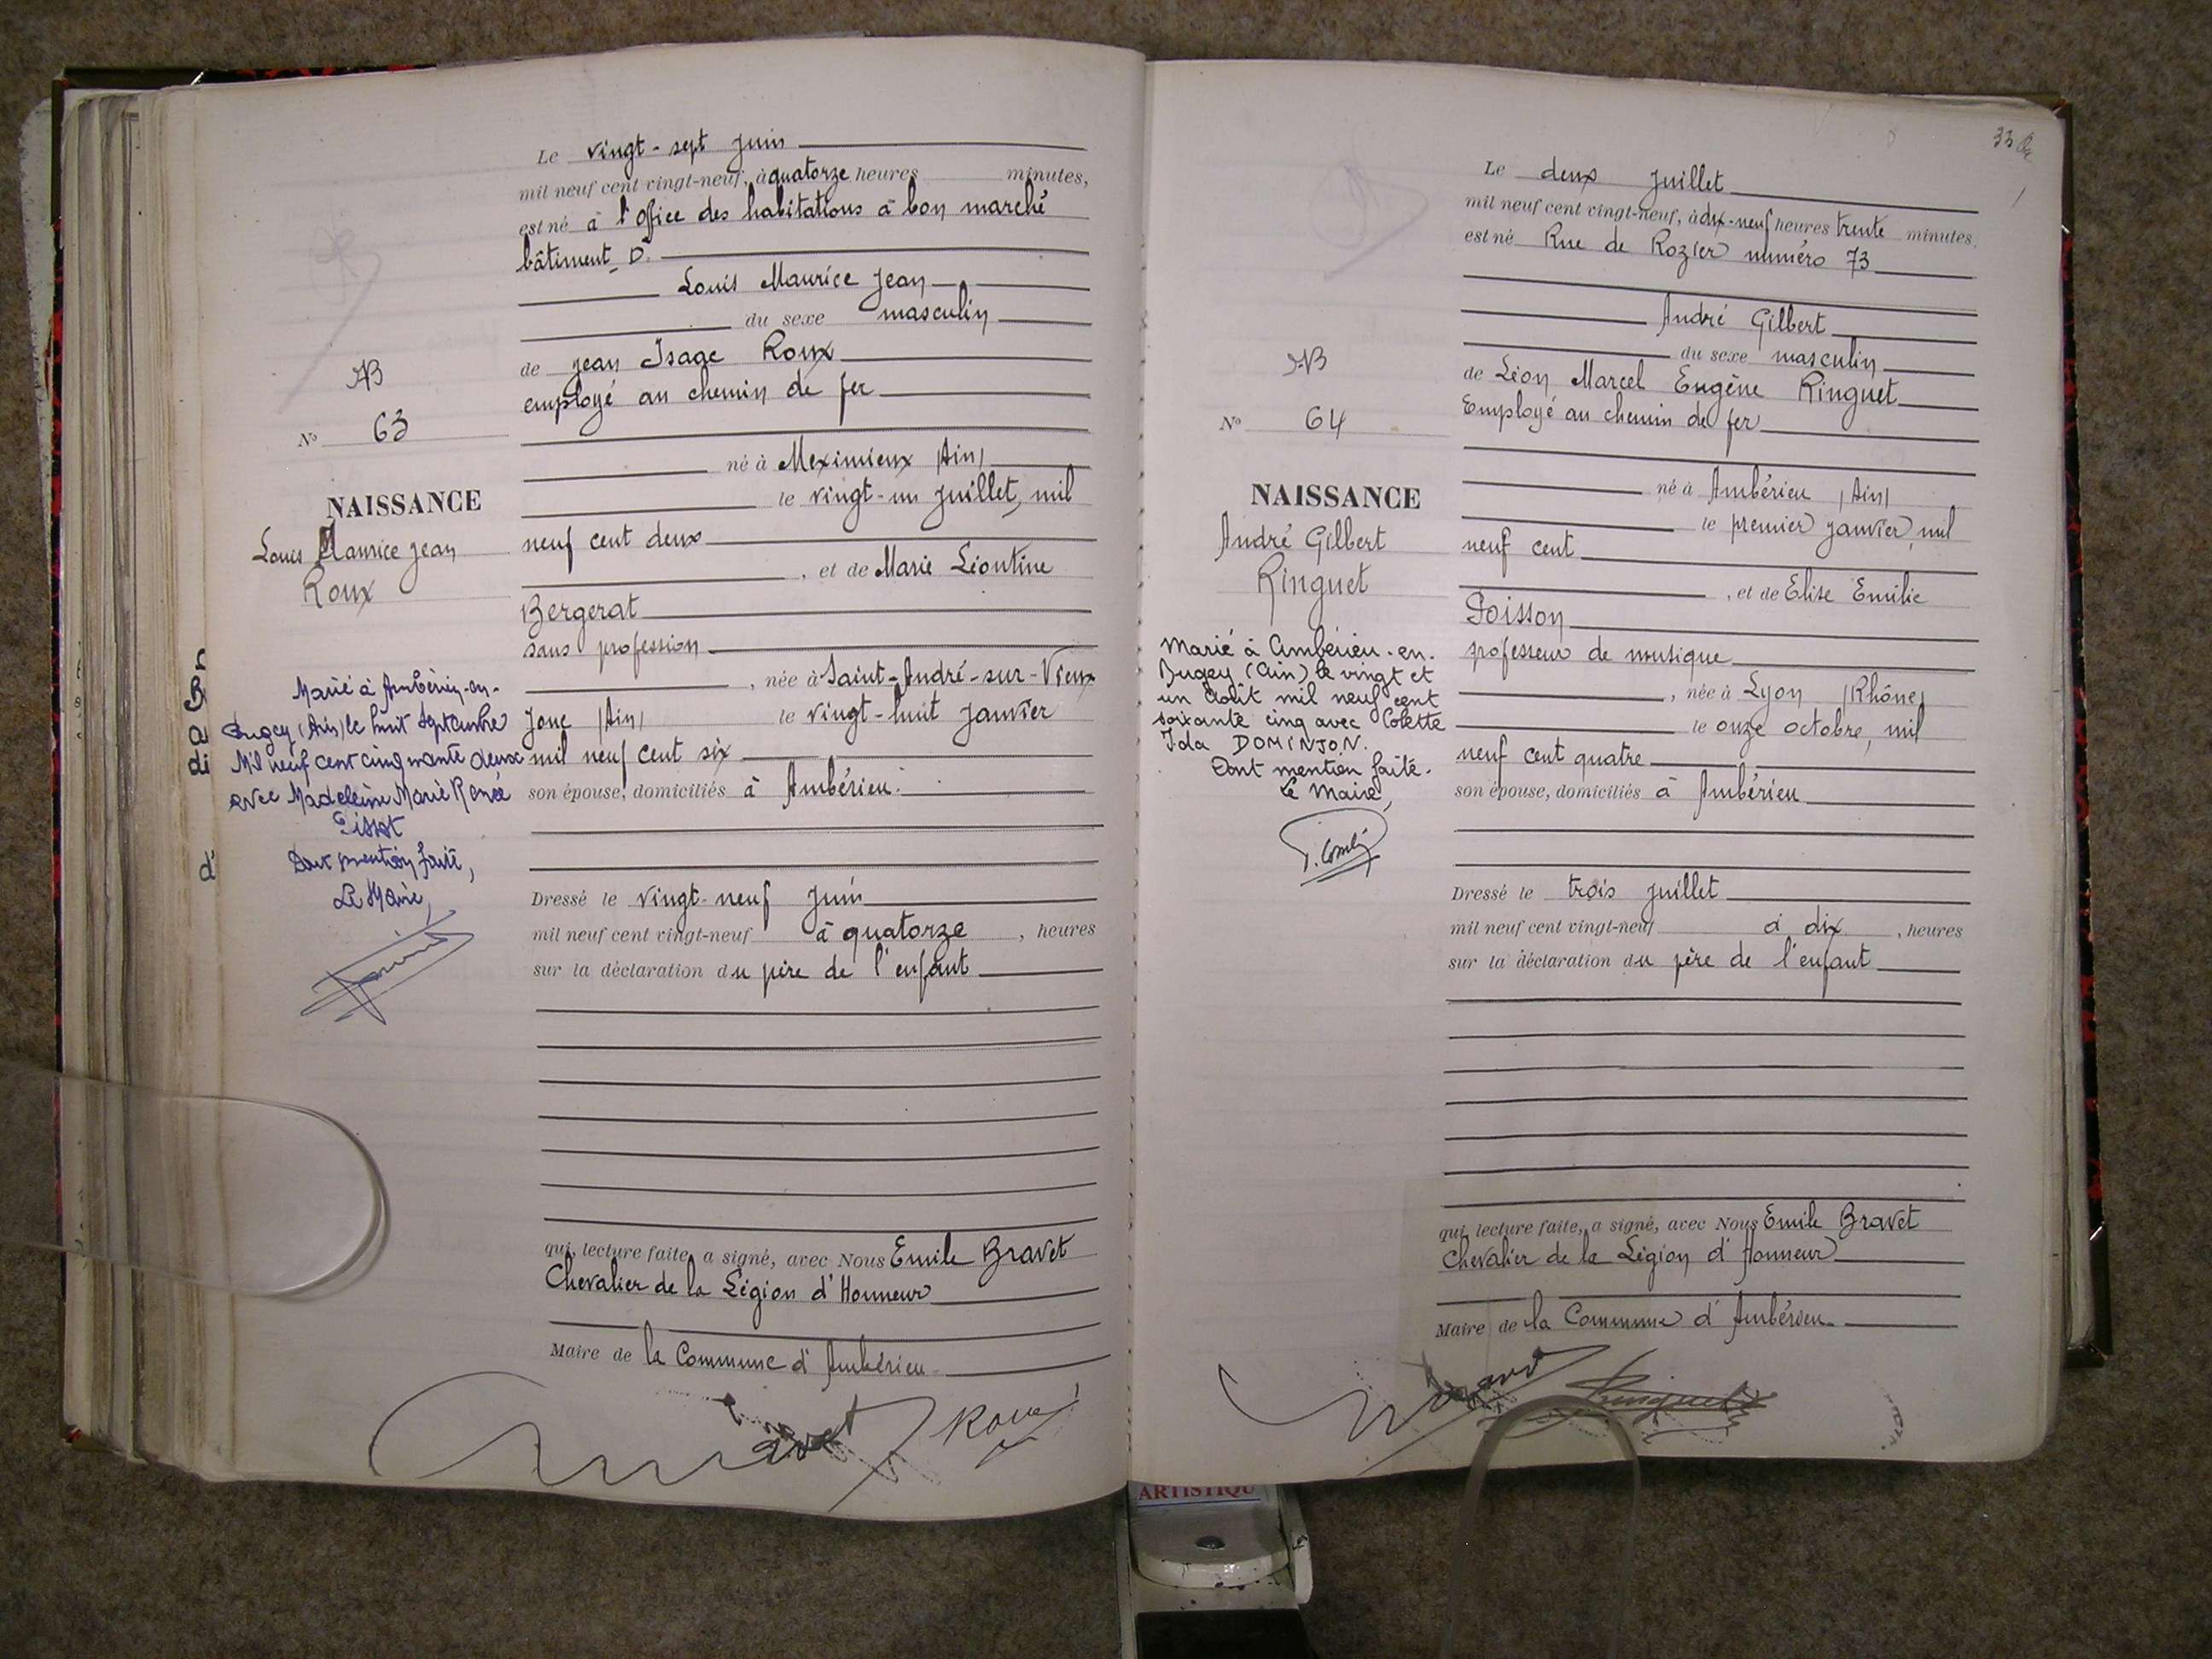 Le vingt-sept juin
mil neuf cent vingt-neuf, à quatorze heures minutes,
est né à l'office des habitations à bon marché
bâtiment D.
Louis Maurice Jean
du sexe masculin
de Jean Isage Roux
employé au chemin de fer
né à Meximieux (Ain)
le vingt-un juillet, mil
neuf cent deux
, et de Marie Léontine
Bergerat
sans profession
, née à Saint-André-sur-Vieux
Jonc (Ain) le vingt-huit janvier
mil neuf cent six
son épouse, domiciliés à Ambérieu.
Dressé le vingt-neuf juin
mil neuf cent vingt-neuf à quatorze , heures
sur la déclaration du père de l'enfant
qui, lecture faite, a signé, avec Nous Emile Bravet
Chevalier de la Légion d'Honneur
Maire de la Commune d'Ambérieu
Roux
N° 63
NAISSANCE
Louis Maurice Jean
Roux
Marié à Ambérieu-en-
Bugey (Ain) le huit Septembre
Mil neuf cent cinquante deux
avec Madeleine Marie Renée
Pissot
Dont mention faite,
Le Maire,
33
Le deux juillet
mil neuf cent vingt-neuf, à dix-neuf heures trente minutes,
est né Rue de Rozier numéro 73
André Gilbert
du sexe masculin
de Léon Marcel Eugène Ringuet
Employé au chemin de fer
né à Ambérieu (Ain)
le premier janvier, mil
neuf cent
, et de Elise Emilie
Poisson
professeur de musique
, née à Lyon (Rhône)
le onze octobre, mil
neuf cent quatre
son épouse, domiciliés à Ambérieu
Dressé le trois juillet
mil neuf cent vingt-neuf à dix , heures
sur la déclaration du père de l'enfant
qui, lecture faite, a signé, avec Nous Emile Bravet
Chevalier de la Légion d'Honneur
Maire de la Commune d'Ambérieu
Ringuet
N° 64
NAISSANCE
André Gilbert
Ringuet
Marié à Ambérieu-en-
Bugey (Ain) le vingt et
un Août mil neuf cent
soixante cinq avec Colette
Ida DOMINJON.
Dont mention faite.
Le Maire,
ARTISTIQU